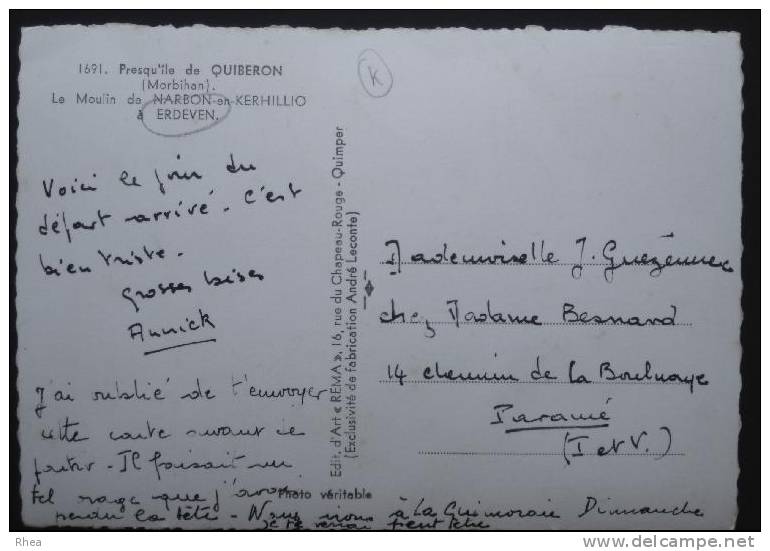 1691. Presqu'île de QUIBERON
(Morbihan).
Le Moulin de NARBON-en-KERHILLIO
à ERDEVEN.
K
Voici le jour du
départ arrivé. C'est
bien triste.
Grosses bises
Annick
J'ai oublié de t'envoyer
cette carte avant de
partir. Il faisait un
tel rage que j'avais
perdu la tête. Nous irons à La Guimorais Dimanche
je te verrai peut être
Edit. d'Art « REMA », 16, rue du Chapeau-Rouge - Quimper
(Exclusivité de fabrication André Leconte)
Photo véritable
Mademoiselle J. Guezennec
chez Madame Besnard
14 chemin de la Boulnaye
Paramé
(I et V.)
Rhea
delcampe.net